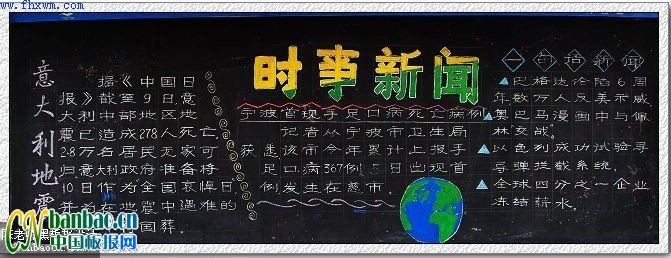 www.fhxwm.com
时事新闻
意大利地震
据《中国日
报》截至9日意
震已造成278人死亡
2.8万名居民无家可
归意大利政府准备将
10日作为全国哀悼日
在地震中遇难的
国葬.
宁波首现手足口病死亡病例
记者从宁波市卫生局
获悉该市今年累计上报手
足口病367例5日出现首
例发生在慈市.
一句话新闻
巴格达沦陷6周
年数万人反美示威
奥巴马漫画中与佩
林交战.
以色列成功试验导
弹拦截系统.
全球四分之一企业
冻结薪水.
CNbanbao.cn
中国板报网